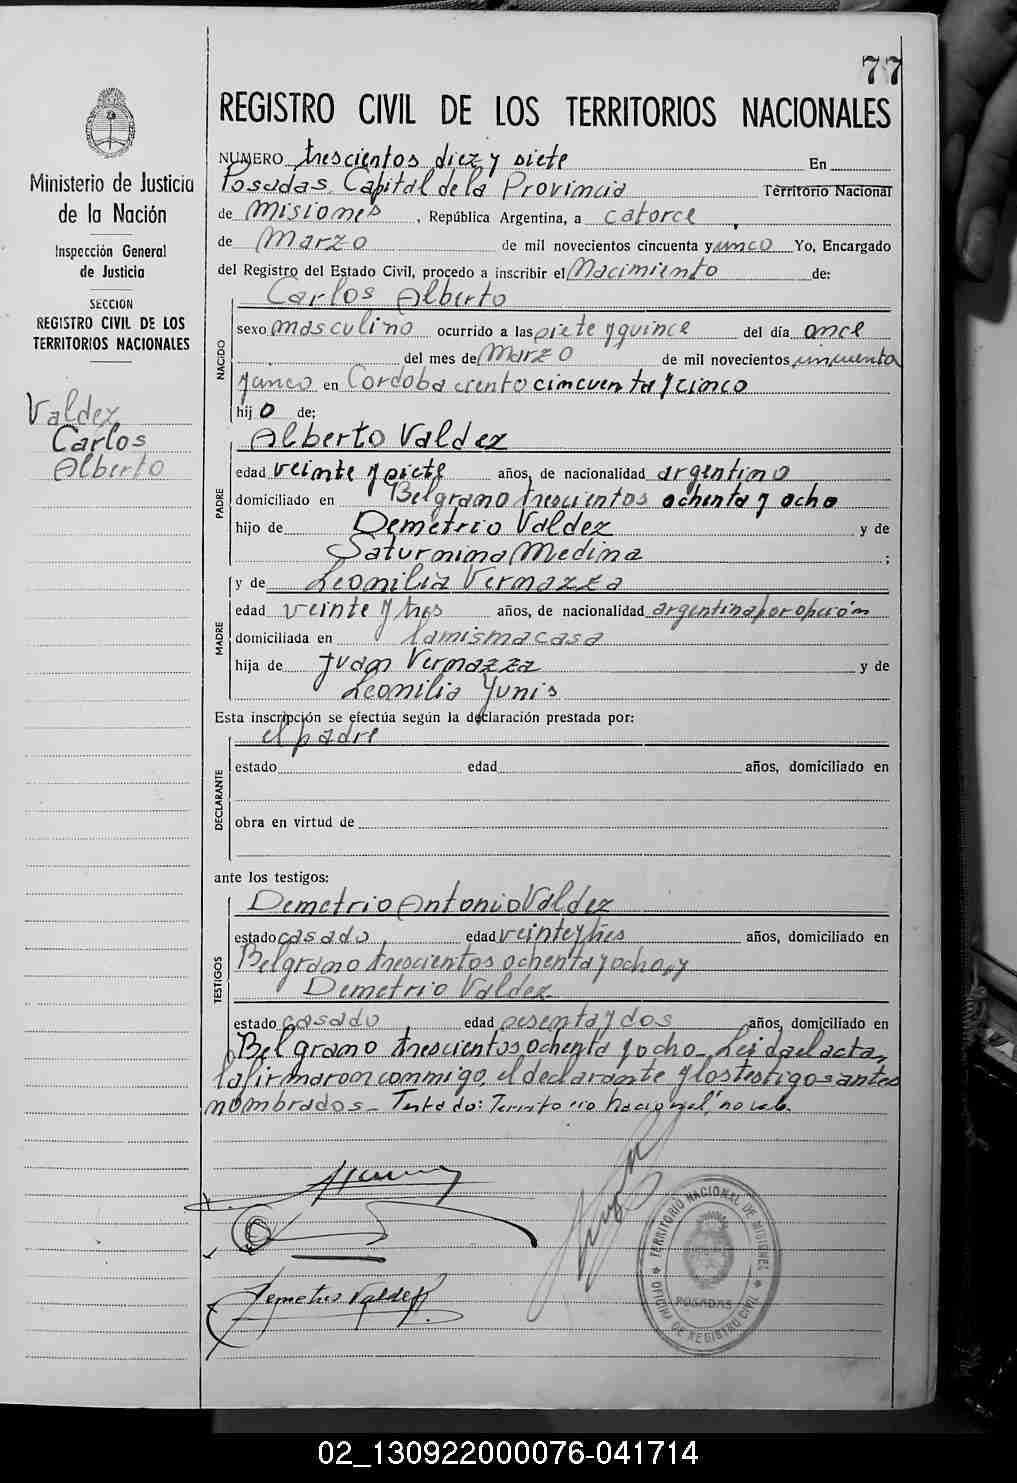 77
REGISTRO CIVIL DE LOS TERRITORIOS NACIONALES
Ministerio de Justicia
de la Nación
Inspección General
de Justicia
SECCION
REGISTRO CIVIL DE LOS
TERRITORIOS NACIONALES
Valdez
Carlos
Alberto
NUMERO trescientos diez y siete En
Posadas Capital de la Provincia Territorio Nacional
de Misiones, República Argentina, a catorce
de Marzo de mil novecientos cincuenta y cinco Yo, Encargado
del Registro del Estado Civil, procedo a inscribir el Nacimiento de:
NACIDO
Carlos Alberto
sexo masculino ocurrido a las siete y quince del día once
del mes de Marzo de mil novecientos cincuenta
y cinco en Cordoba ciento cincuenta y cinco
hijo de:
PADRE
Alberto Valdez
edad veinte y siete años, de nacionalidad argentino
domiciliado en Belgrano trescientos ochenta y ocho
hijo de Demetrio Valdez y de
Saturnina Medina ;
MADRE
y de Leonilia Vernazza
edad veinte y tres años, de nacionalidad argentina por opción
domiciliada en la misma casa
hija de Juan Vernazza y de
Leonilia Yunis
Esta inscripción se efectúa según la declaración prestada por:
DECLARANTE
el padre
estado edad años, domiciliado en
obra en virtud de
ante los testigos:
TESTIGOS
Demetrio Antonio Valdez
estado casado edad veinte y tres años, domiciliado en
Belgrano trescientos ochenta y ocho, y
Demetrio Valdez
estado casado edad sesenta y dos años, domiciliado en
Belgrano trescientos ochenta y ocho_ Leida el acta,
la firmaron conmigo, el declarante y los testigos antes
nombrados_ Testado: "Territorio Nacional", no vale.
Demetrio Valdez
TERRITORIO NACIONAL DE MISIONES
POSADAS
OFICINA DE REGISTRO CIVIL
02_130922000076-041714